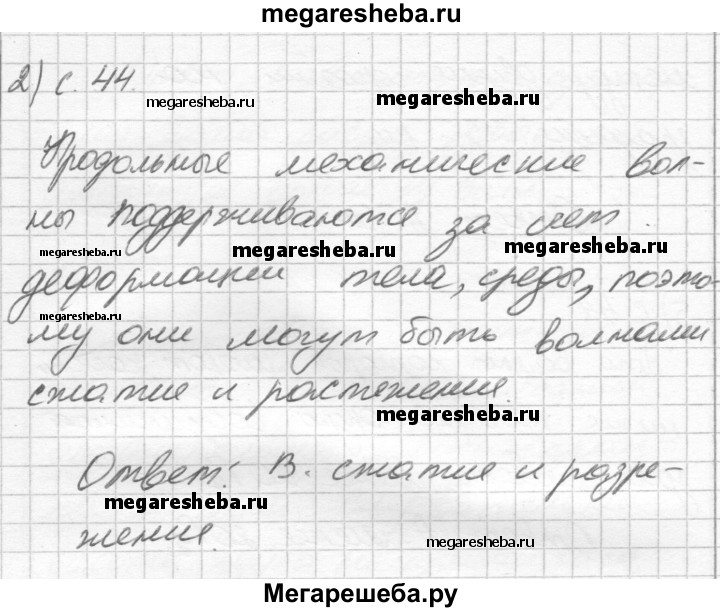 megaresheba.ru
2) с. 44.
megaresheba.ru
megaresheba.ru
Продольные механические вол-
ны поддерживаются за счет
megaresheba.ru
megaresheba.ru
megaresheba.ru
деформации тела, среды, поэто-
megaresheba.ru
му они могут быть волнами
сжатие и растяжения.
megaresheba.ru
Ответ: В. сжатие и разре-
megaresheba.ru
жения.
megaresheba.ru
Мегарешеба.ру